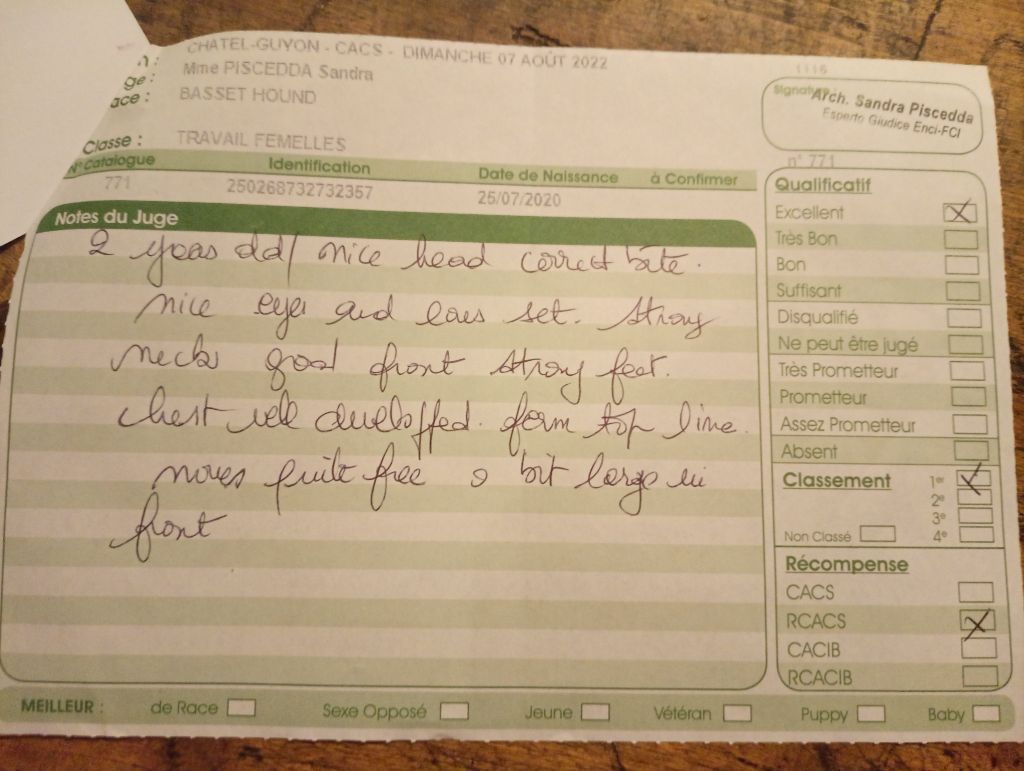 CHATEL-GUYON - CACS - DIMANCHE 07 AOÛT 2022
Mme PISCEDDA Sandra
ge :
BASSET HOUND
ace :
Classe : TRAVAIL FEMELLES
1116
Signature
Arch. Sandra Piscedda
Esperto Giudice Enci-FCI
N° Catalogue Identification Date de Naissance à Confirmer
771 250268732732357 25/07/2020
n° 771
Notes du Juge
2 years old/ nice head correct bite.
nice eyes and ears set. Strong
neck good front strong feet.
Chest well top line.
moves quite free a bit large in
front
Qualificatif
Excellent X
Très Bon
Bon
Suffisant
Disqualifié
Ne peut être jugé
Très Prometteur
Prometteur
Assez Prometteur
Absent
Classement 1er
2e
3e
Non Classé 4e
Récompense
CACS
RCACS X
CACIB
RCACIB
MEILLEUR : de Race Sexe Opposé Jeune Vétéran Puppy Baby